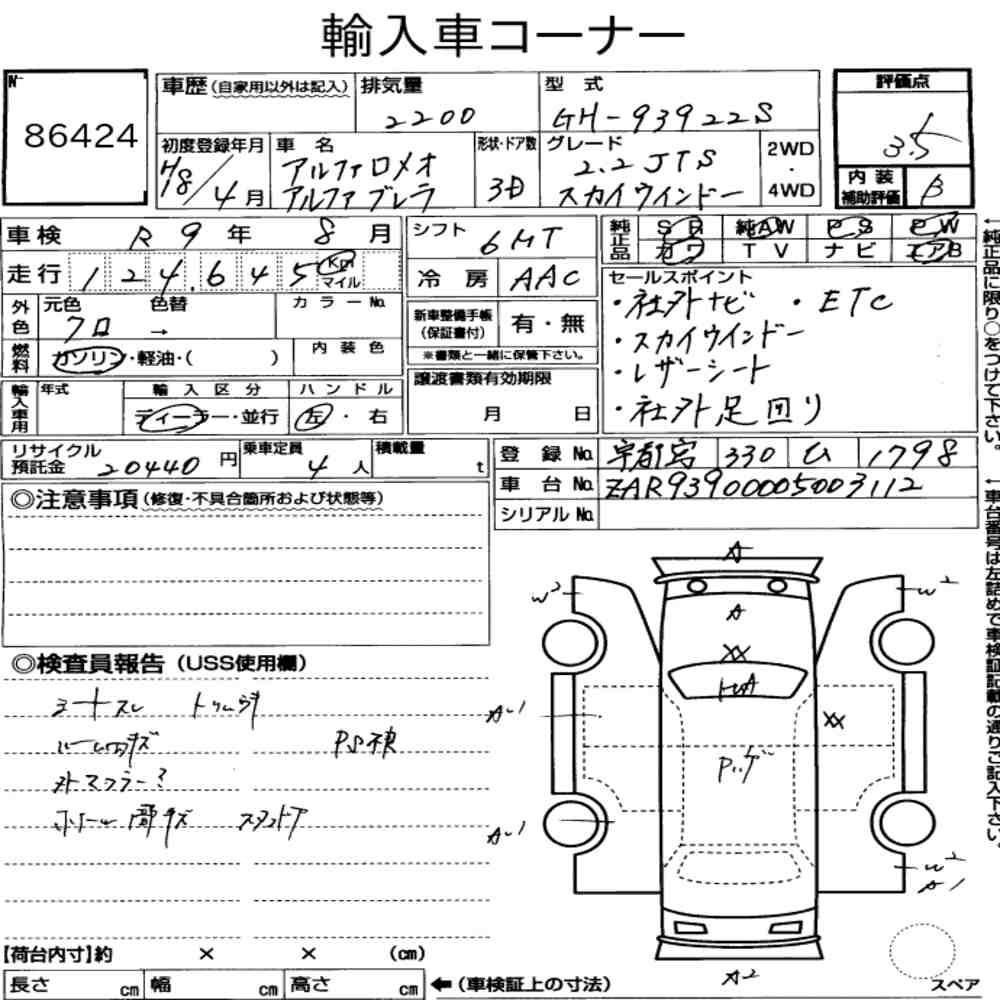 輸入車コーナー
No.
86424
車歴(自家用以外は記入)
排気量
2200
型式
GH-93922S
評価点
3.5
初度登録年月
H18/4月
車名
アルファロメオ
アルファブレラ
形状・ドア数
3D
グレード
2.2 JTS
スカイウインドー
2WD
・
4WD
内装
補助評価
B
車検 R 9年 8月
シフト 6MT
純正品
SR 純AW PS PW
カワ TV ナビ エアB
走行 124,645 Km
マイル
冷房 AAC
セールスポイント
・社外ナビ ・ETC
・スカイウインドー
・レザーシート
・社外足回り
外色
元色 色替
クロ →
カラーNo.
新車整備手帳
(保証書付)
有・無
※書類と一緒に保管下さい。
燃料
ガソリン・軽油・( )
内装色
譲渡書類有効期限
月 日
輸入車用
年式
輸入区分
ディーラー・並行
ハンドル
左・右
リサイクル
預託金 20440円
乗車定員
4人
積載量
t
登録No. 宇都宮 330 ム 1798
車台No. ZAR93900005003112
シリアルNo.
◎注意事項(修復・不具合箇所および状態等)
◎検査員報告(USS使用欄)
シートスレ
ルームWキズ
PS凍
外マフラー?
A
A
XX
W2
W2
A-1
XX
A-1
W2
A1
A2
【荷台内寸】約 × × (cm)
長さ cm 幅 cm 高さ cm ←(車検証上の寸法)
スペア
←純正品に限り○をつけて下さい。
←車台番号は左詰めで車検証記載の通りご記入下さい。